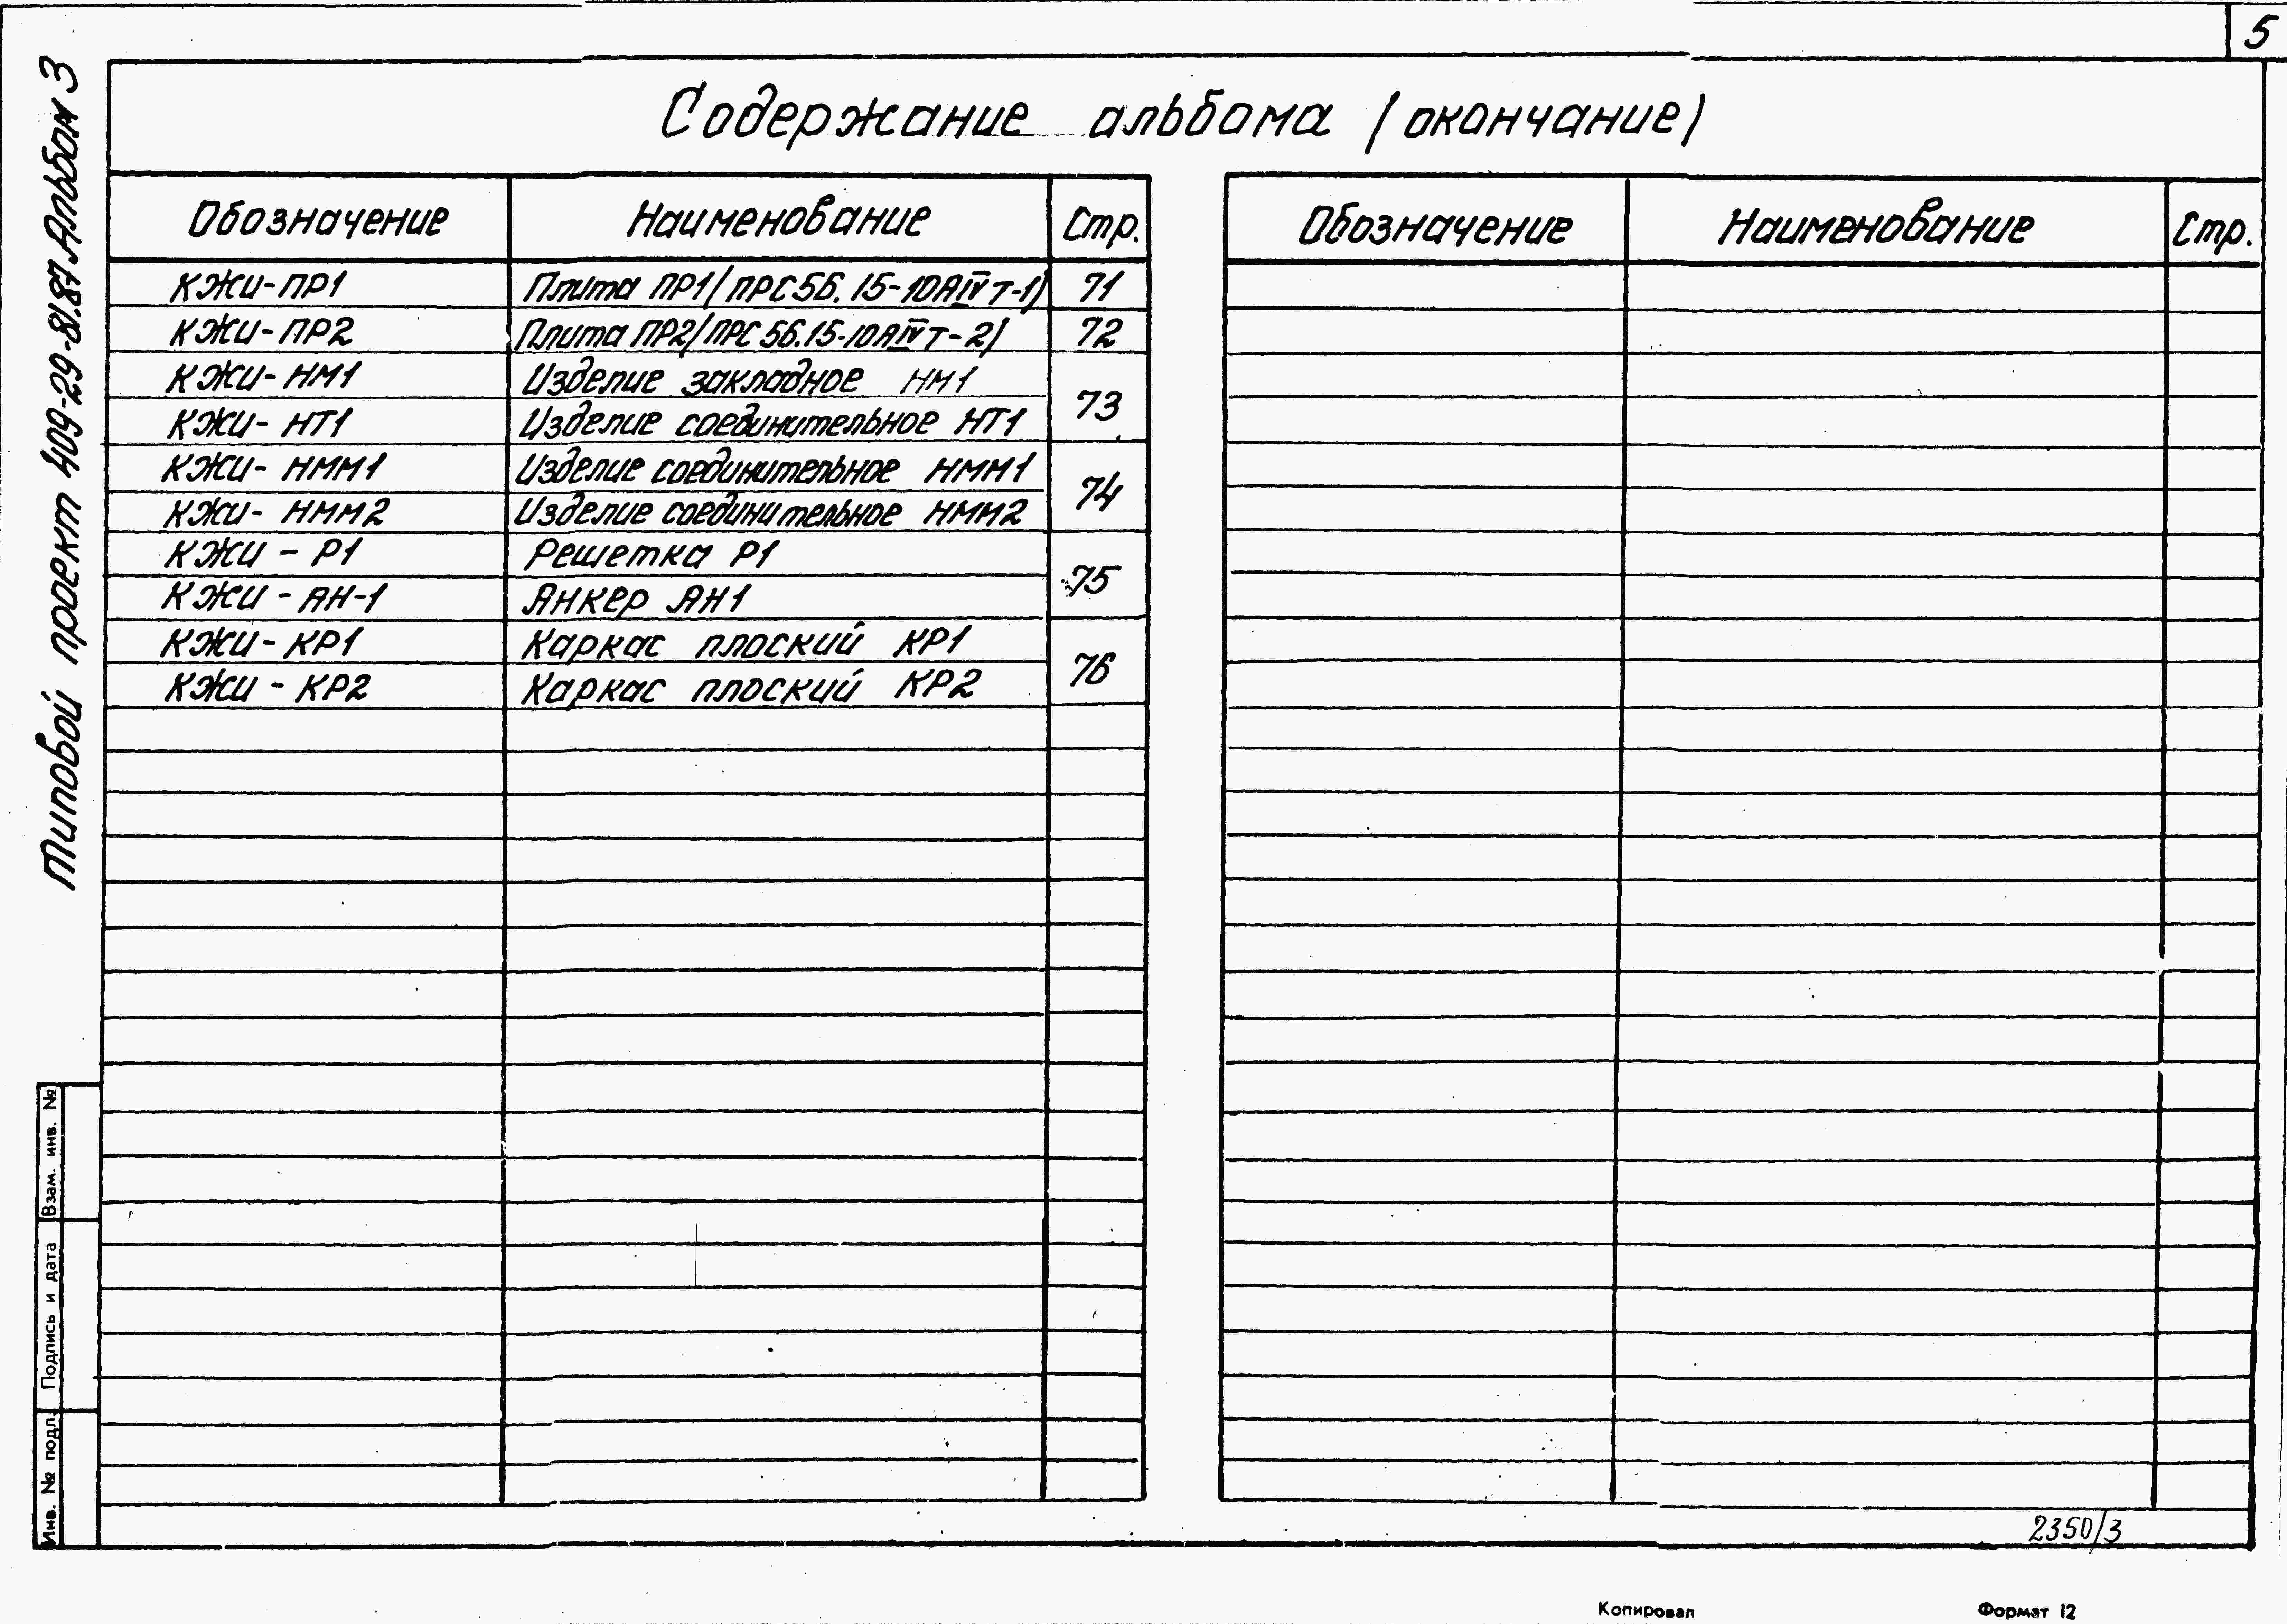 5
Типовой проект 409-29-81.87 Альбом 3
Содержание альбома (окончание)
Обозначение Наименование Стр.
КЖИ-ПР1 Плита ПР1(ПРС56.15-10АIVТ-1) 71
КЖИ-ПР2 Плита ПР2(ПРС56.15-10АIVТ-2) 72
КЖИ-НМ1 Изделие закладное НМ1
73
КЖИ-НТ1 Изделие соединительное НТ1
КЖИ-НММ1 Изделие соединительное НММ1
74
КЖИ-НММ2 Изделие соединительное НММ2
КЖИ-Р1 Решетка Р1
75
КЖИ-АН-1 Анкер АН1
КЖИ-КР1 Каркас плоский КР1
76
КЖИ-КР2 Каркас плоский КР2
Обозначение Наименование Стр.
Взам. инв. №
Подпись и дата
Инв. № подл.
2350/3
Копировал Формат 12